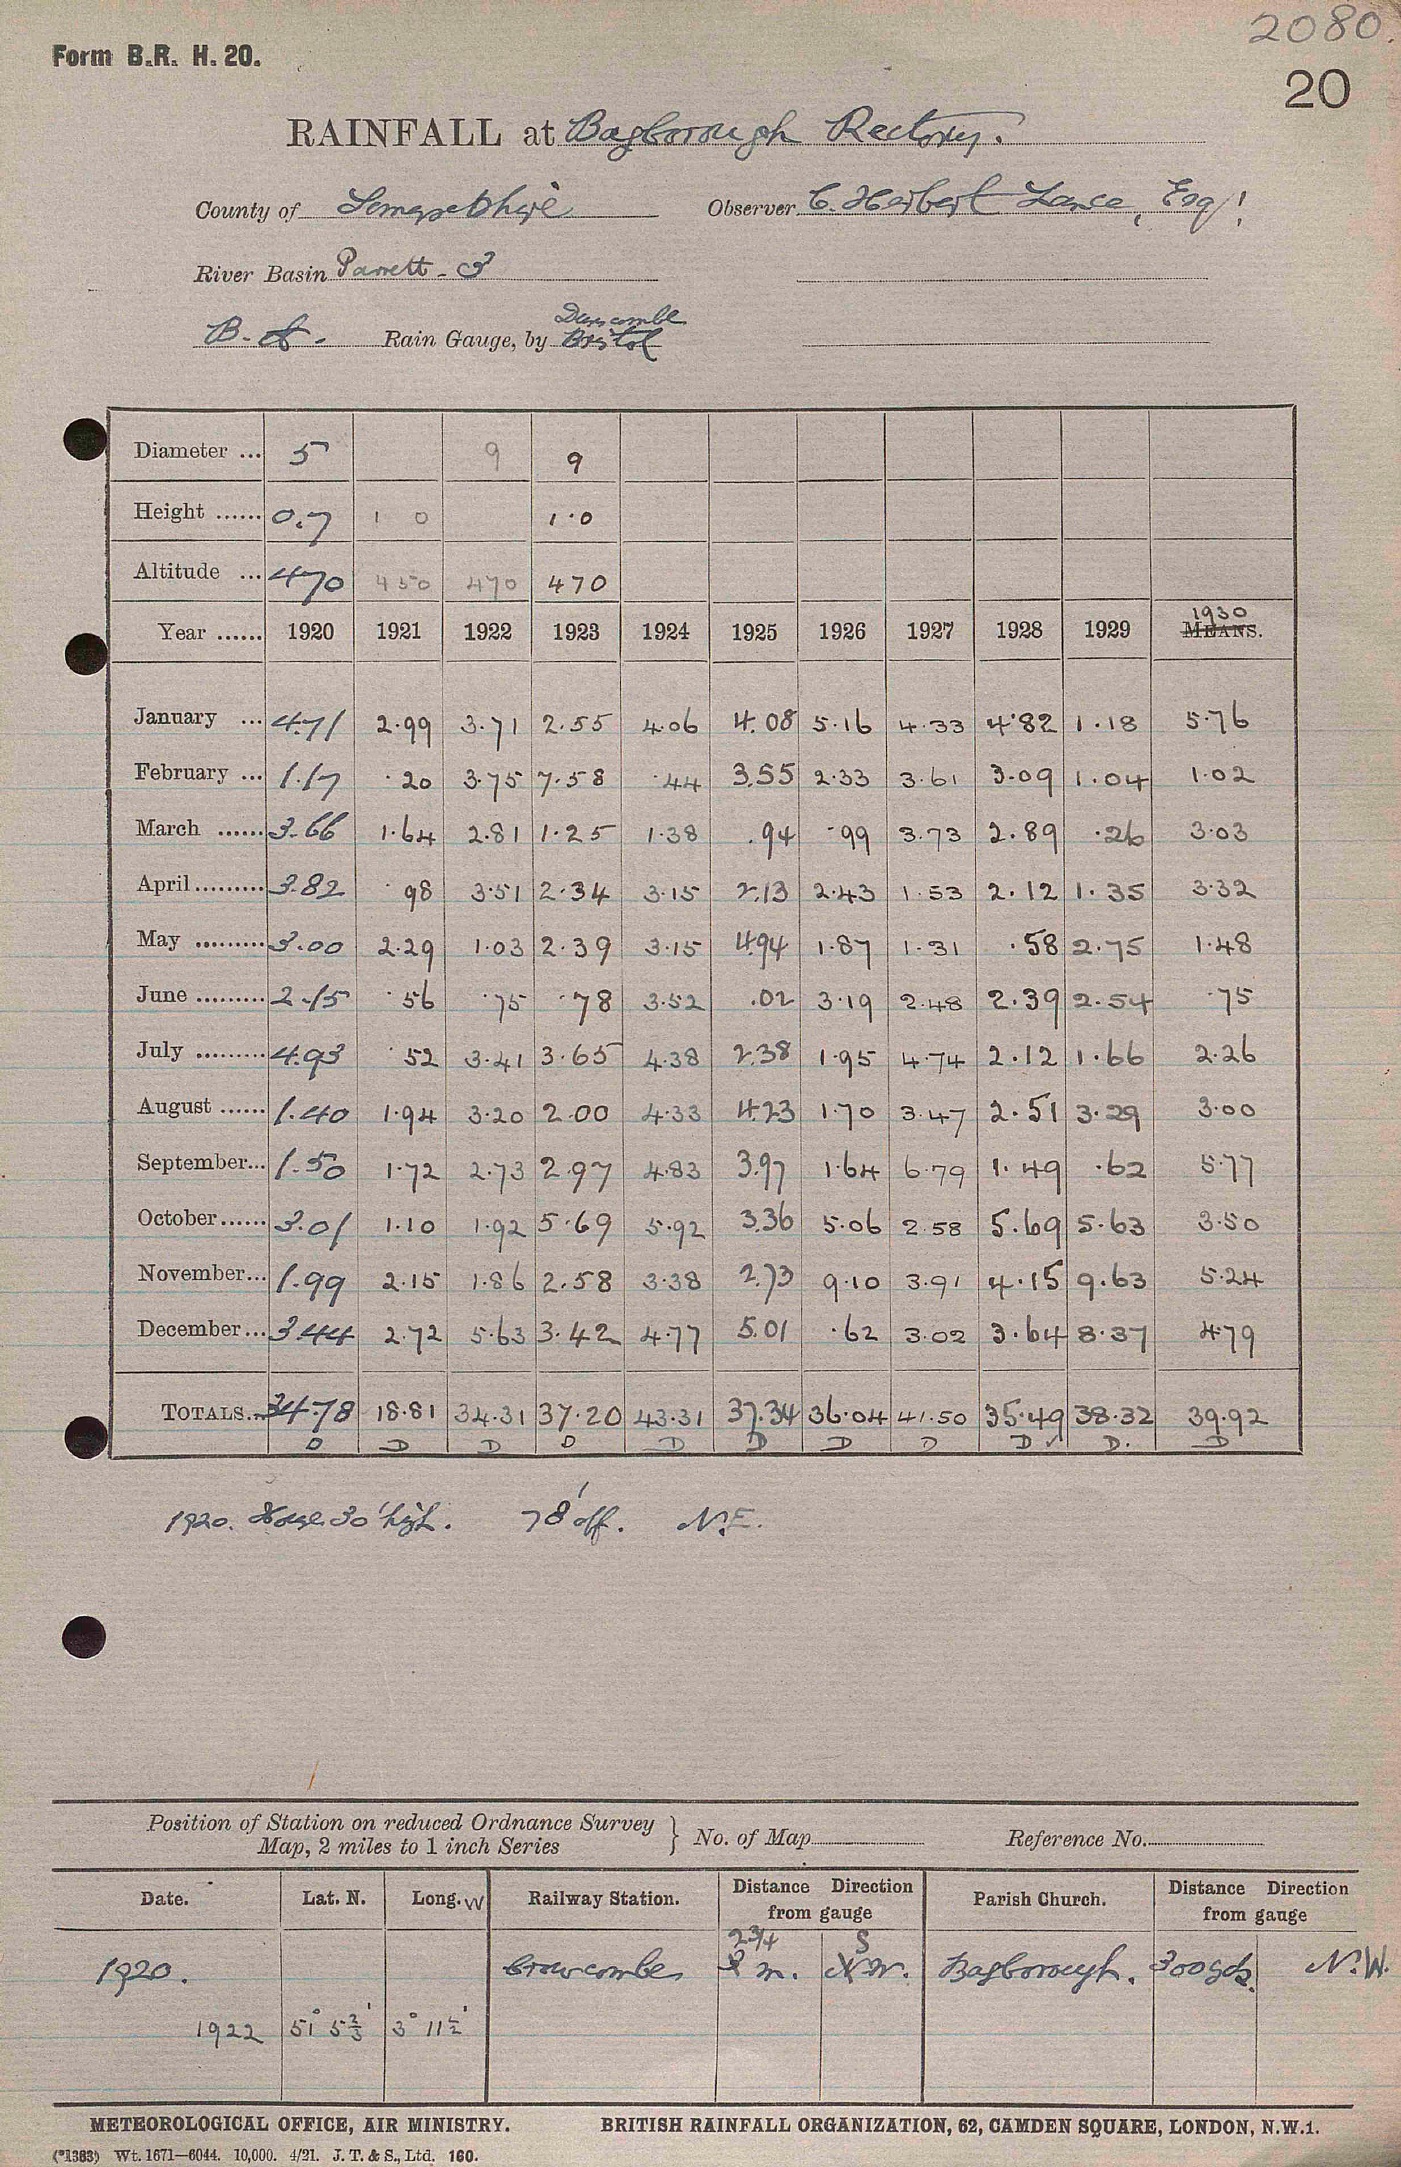 2080.
Form B.R. H. 20.
20
RAINFALL at Bagborough Rectory.
County of Somersetshire Observer C. Herbert Lance, Esq!
River Basin Parrett - 3
B. Rain Gauge, by Duncombe Bristol
Diameter ... 5 9 9
Height ...... 0.7 1 0 1·0
Altitude ... 470 450 470 470
Year ...... 1920 1921 1922 1923 1924 1925 1926 1927 1928 1929 1930 MEANS.
January ... 4.71 2·99 3·71 2·55 4·06 4.08 5·16 4·33 4·82 1·18 5·76
February ... 1.17 ·20 3·75 7·58 ·44 3.55 2·33 3·61 3·09 1·04 1·02
March ...... 3.66 1·64 2·81 1·25 1·38 .94 ·99 3·73 2·89 ·26 3·03
April......... 3.82 ·98 3·51 2·34 3·15 2.13 2·43 1·53 2·12 1·35 3·32
May ......... 3.00 2·29 1·03 2·39 3·15 4.94 1·87 1·31 ·58 2·75 1·48
June ......... 2.15 ·56 ·75 ·78 3·52 .02 3·19 2·48 2·39 2·54 ·75
July ......... 4.93 ·52 3·41 3·65 4·38 2.38 1·95 4·74 2·12 1·66 2·26
August ...... 1.40 1·94 3·20 2·00 4·33 4.23 1·70 3·47 2·51 3·29 3·00
September... 1.50 1·72 2·73 2·97 4·83 3.97 1·64 6·79 1·49 ·62 5·77
October...... 3.01 1·10 1·92 5·69 5·92 3.36 5·06 2·58 5·69 5·63 3·50
November... 1.99 2·15 1·86 2·58 3·38 2.73 9·10 3·91 4·15 9·63 5·24
December... 3.44 2·72 5·63 3·42 4·77 5.01 ·62 3·02 3·64 8·37 4·79
TOTALS... 34.78 18·81 34·31 37·20 43·31 37.34 36·04 41·50 35·49 38·32 39·92
D D D D D D D D D ✓ D. D
1920. House 30' high. 78' off. N.E.
Position of Station on reduced Ordnance Survey
Map, 2 miles to 1 inch Series } No. of Map Reference No.
Date. Lat. N. Long. W Railway Station. Distance Direction from gauge Parish Church. Distance Direction from gauge
1920. Crowcombe 2¾ m. S W. Bagborough. 300 yds. N.W.
1922 51° 5⅔' 3° 11½'
METEOROLOGICAL OFFICE, AIR MINISTRY. BRITISH RAINFALL ORGANIZATION, 62, CAMDEN SQUARE, LONDON, N.W.1.
(*1383) Wt. 1671—6044. 10,000. 4/21. J. T. & S., Ltd. 160.